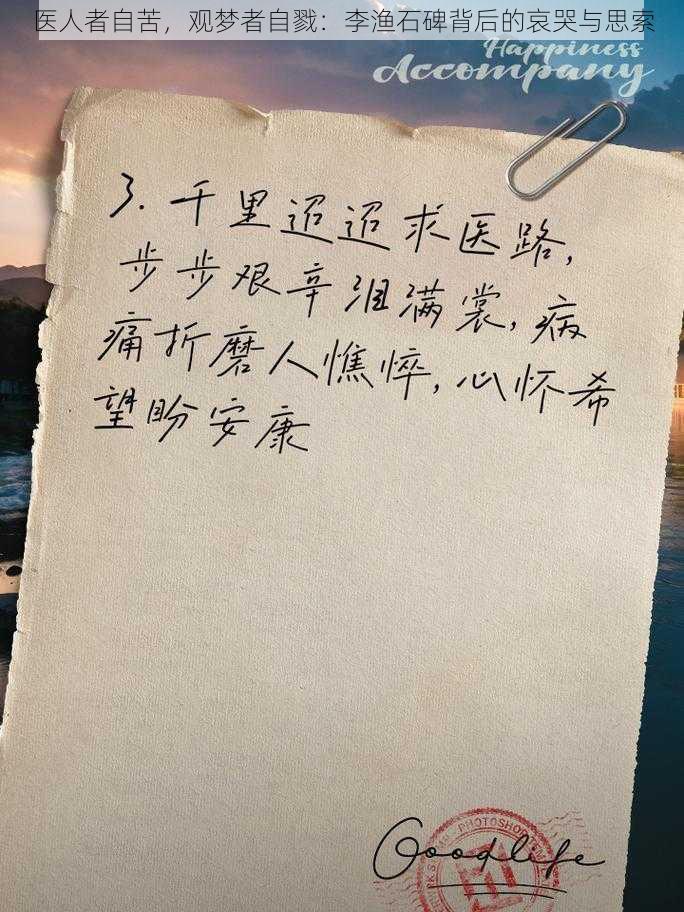 医人者自苦，观梦者自戮：李渔石碑背后的哀哭与思索
Happiness
Accompany
3. 千里迢迢求医路,
步步艰辛泪满裳, 病
痛折磨人憔悴, 心怀希
望盼安康
PHOTOSHOP
Goodlife